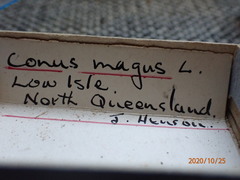 Conus magus L.
Low Isle.
North Queensland.
J. Henson.
2020/10/25